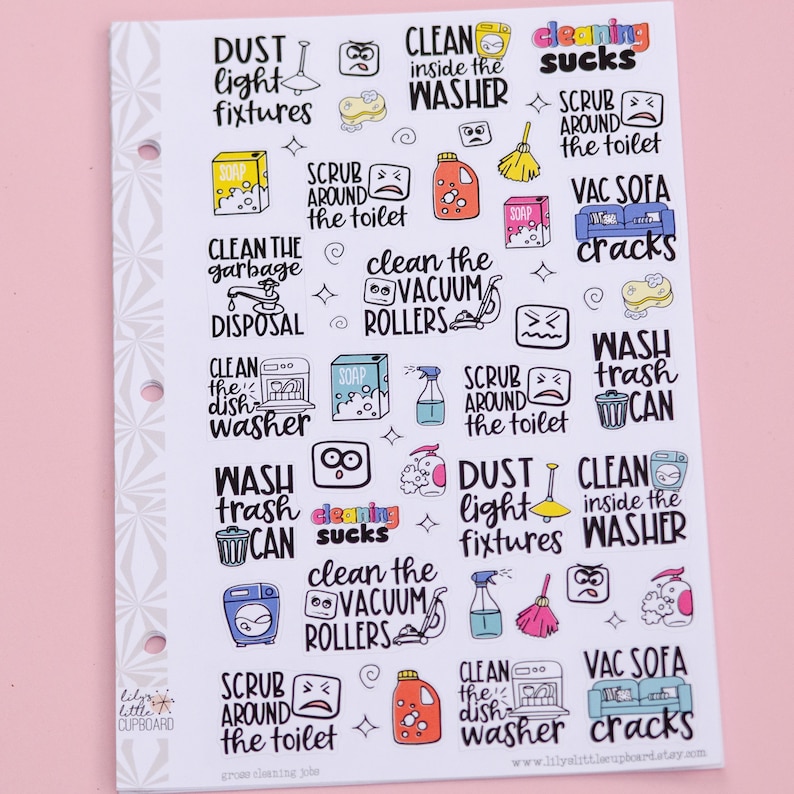 DUST
light
fixtures
CLEAN
inside the
WASHER
cleaning
sucks
SCRUB
AROUND
the toilet
SOAP
SCRUB
AROUND
the toilet
SOAP
VAC SOFA
cracks
CLEAN THE
garbage
DISPOSAL
clean the
VACUUM
ROLLERS
CLEAN
the
dish
washer
SOAP
SCRUB
AROUND
the toilet
WASH
trash
CAN
WASH
trash
CAN
cleaning
sucks
DUST
light
fixtures
CLEAN
inside the
WASHER
clean the
VACUUM
ROLLERS
SCRUB
AROUND
the toilet
CLEAN
the
dish
washer
VAC SOFA
cracks
lily's
little
CUPBOARD
gross cleaning jobs
www.lilyslittlecupboard.etsy.com